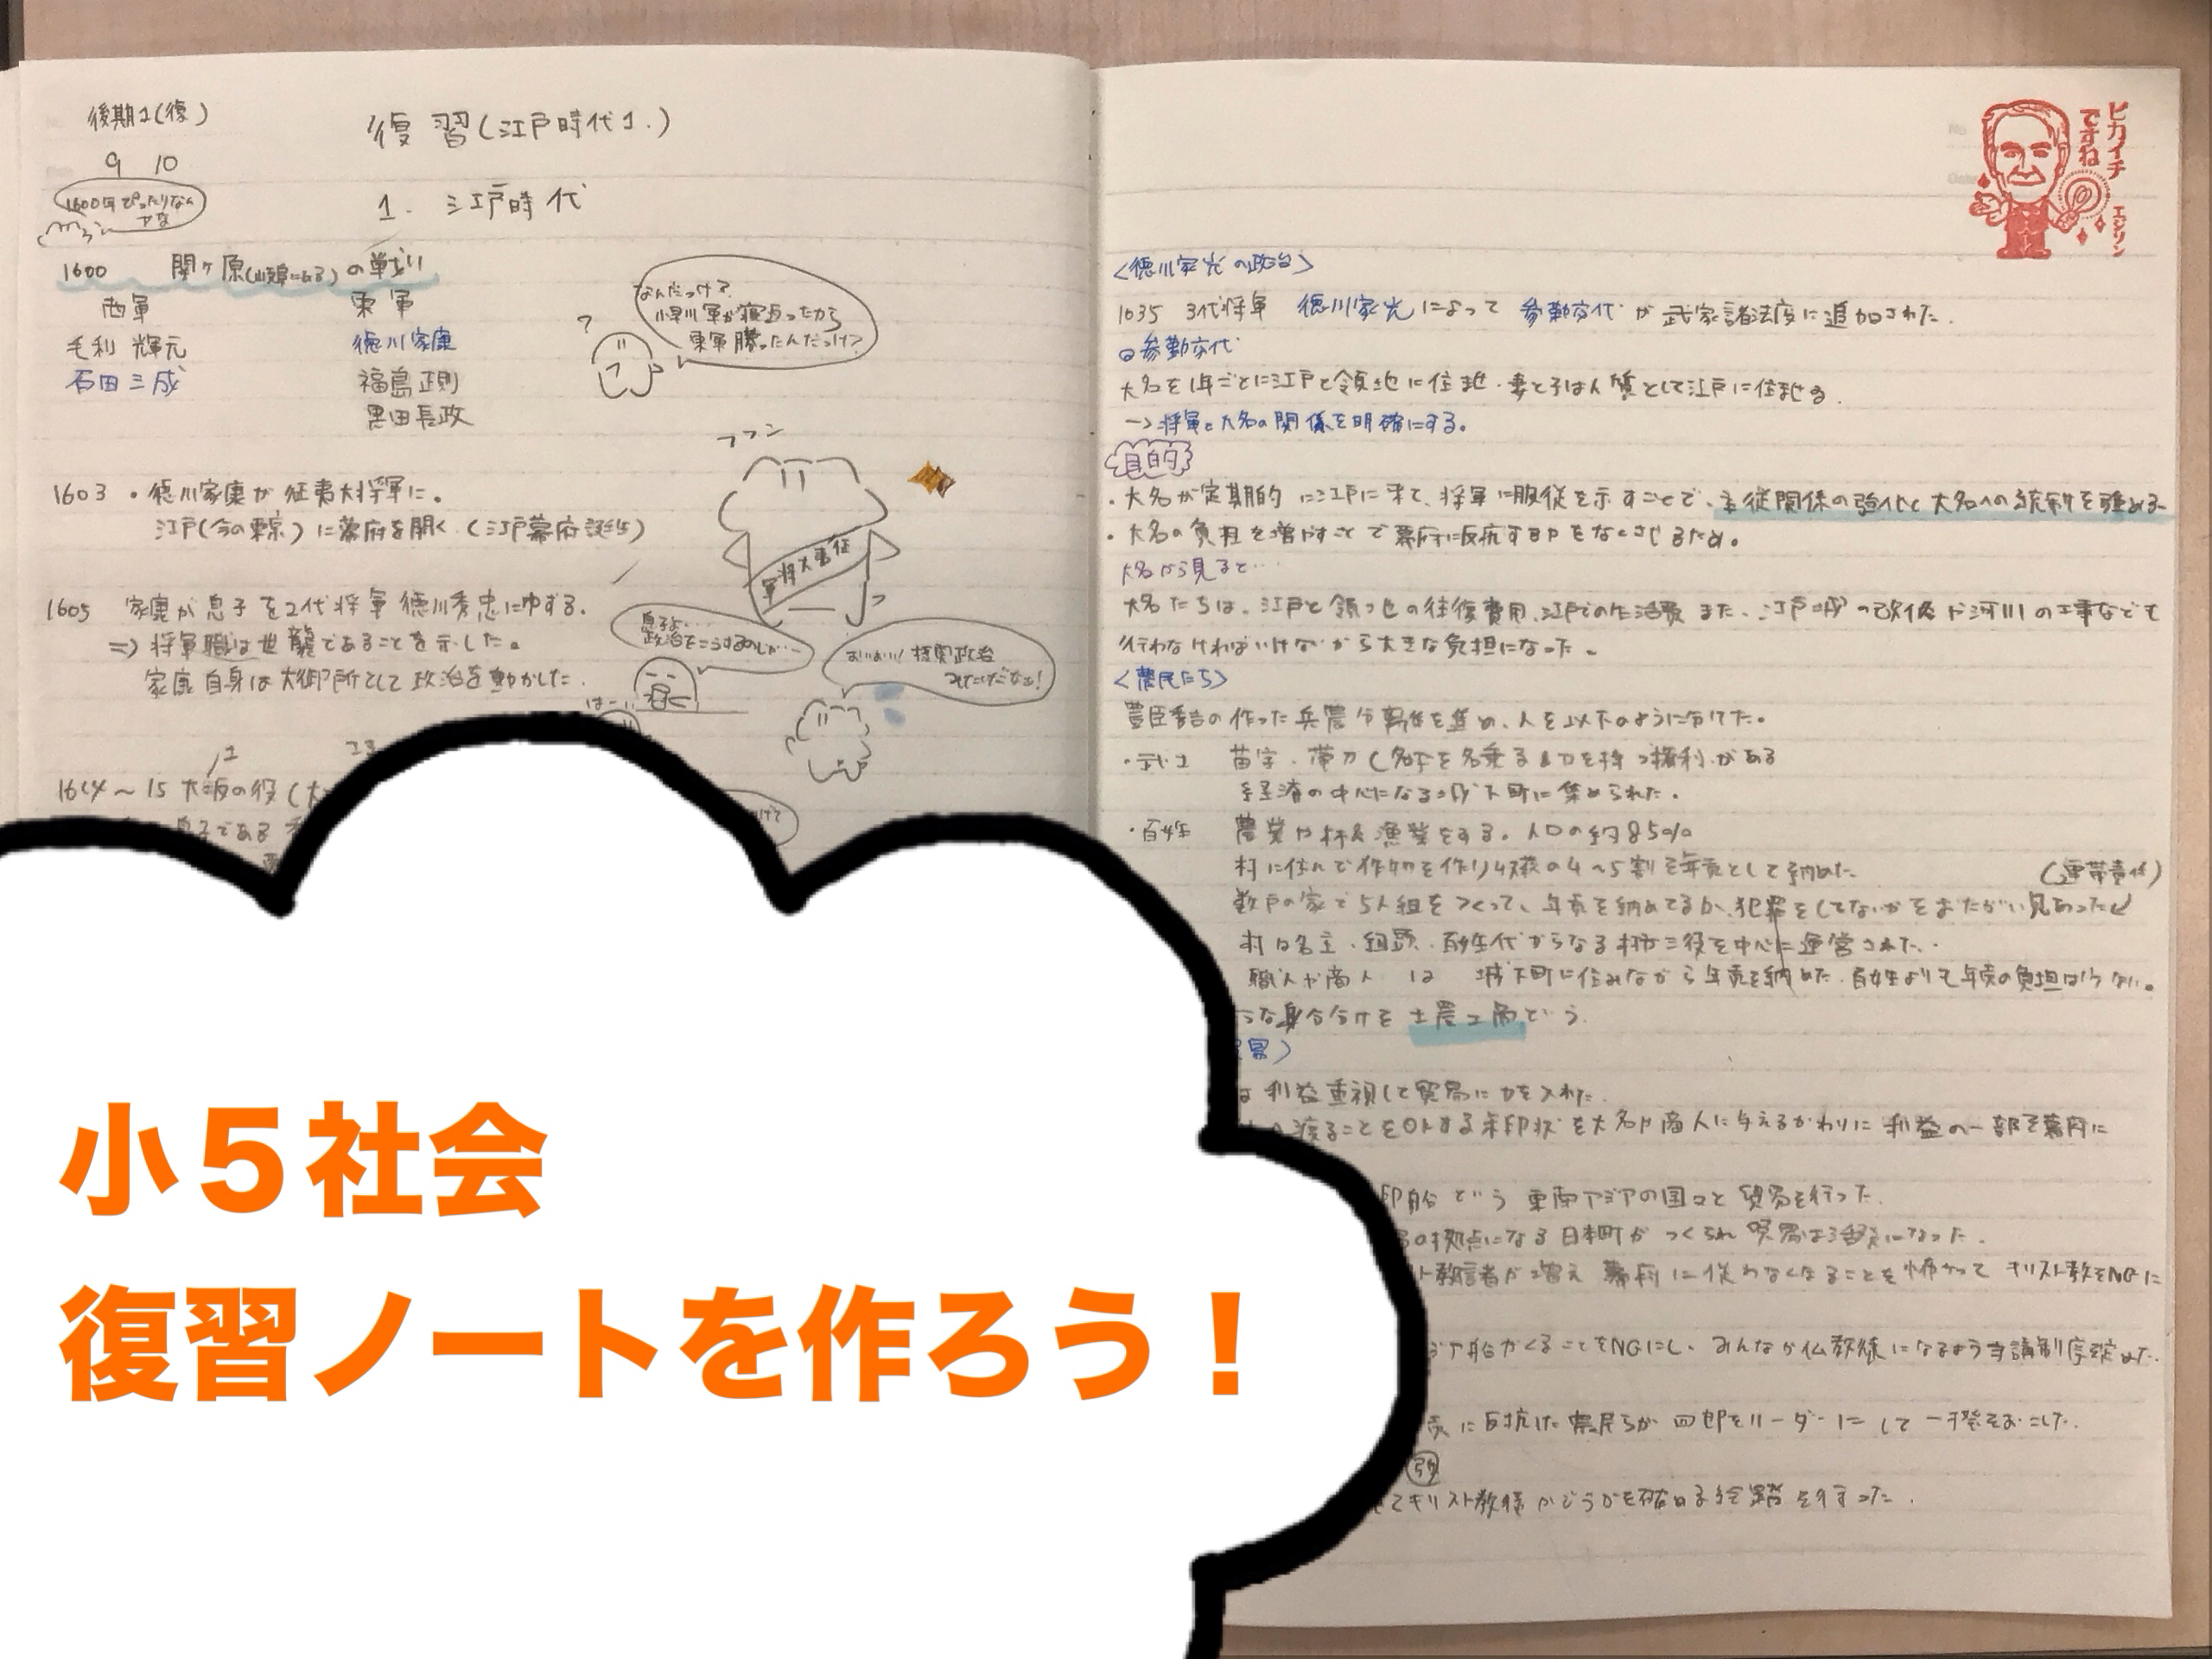 後期1(復)
9 10
1600年ぴったりなんやな
復習(江戸時代1.)
1. 江戸時代
1600 関ヶ原(山頂にある)の戦い
西軍 東軍
毛利輝元 徳川家康
石田三成 福島正則
黒田長政
なんだっけ?
小早川軍が寝返ったから
東軍勝ったんだっけ?
?
フフン
征夷大将軍
1603 ・徳川家康が征夷大将軍に。
江戸(今の東京)に幕府を開く(江戸幕府誕生)
1605 家康が息子を2代将軍徳川秀忠にゆずる.
⇒将軍職は世襲であることを示した。
家康自身は大御所として政治を動かした.
息子よ…
政治をこうするのじゃ…
はーい
1614〜15 大坂の役(大
息子である
ピカイチですね
エジソン
<徳川家光の政治>
1635 3代将軍 徳川家光によって 参勤交代が武家諸法度に追加された.
参勤交代
大名を1年ごとに江戸と領地に住ませ・妻と子は人質として江戸に住ませる.
→将軍と大名の関係を明確にする。
目的
・大名が定期的に江戸に来て、将軍に服従を示すことで、主従関係の強化と大名への統制を強める
・大名の負担を増やすことで幕府に反抗する力をなくさせるため。
大名から見ると…
大名たちは、江戸と領地の往復費用、江戸での生活費また、江戸城の改修や河川の工事なども
行わなければいけないから大きな負担になった。
<農民たち>
豊臣秀吉の作った兵農分離を進め、人を以下のように分けた。
・武士 苗字・帯刀(名字を名乗る&刀を持つ権利がある
経済の中心になる城下町に集められた.
・百姓 農業や林&漁業をする。人口の約85%
村に住んで作物を作り収穫の4〜5割を年貢として納めた
(連帯責任)
数戸の家で5人組をつくって、年貢を納めてるか、犯罪をしてないかをおたがい見あった
村は名主・組頭・百姓代からなる村方三役を中心に運営された.
職人や商人は 城下町に住みながら年貢を納めた.百姓よりも年貢の負担は少ない。
うな身分分けを士農工商という.
は利益重視して貿易に力を入れた.
渡ることをOKする朱印状を大名や商人に与えるかわりに利益の一部を幕府に
印船という 東南アジアの国々と貿易を行った.
拠点になる日本町がつくられ貿易は活発になった.
ト教信者が増え幕府に従わなくなることを怖がってキリスト教をNGに
船がくることをNGにし、みんなが仏教徒になるよう寺請制度定めた.
に反抗した農民らが四郎をリーダーにして一揆をおこした.
てキリスト教徒かどうかを確める絵踏を行なった.
小5社会
復習ノートを作ろう!